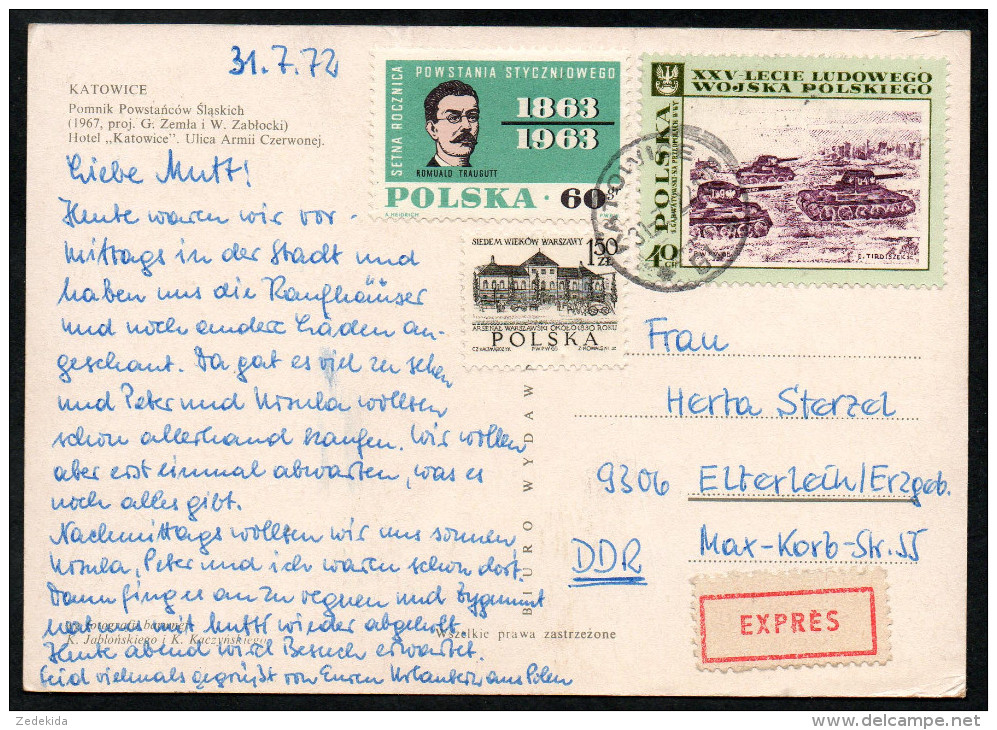 31.7.72
KATOWICE
Pomnik Powstańców Śląskich
(1967, proj. G. Zemła i W. Zabłocki)
Hotel „Katowice”. Ulica Armii Czerwonej.
Liebe Mutt!
Heute waren wir vor-
mittags in der Stadt und
haben uns die Kaufhäuser
und noch andere Läden an-
geschaut. Da gab es viel zu sehen
und Peter und Ursula wollten
schon allerhand kaufen. Wir wollen
aber erst einmal abwarten, was es
noch alles gibt.
Nachmittags wollten wir uns sonnen
Ursula, Peter und ich waren schon dort.
Dann fing es an zu regnen und Zygmunt
hat uns mit Mutti wieder abgeholt.
K. Jabłońskiego i K. Kaczyńskiego
Heute abend wird Besuch erwartet.
Seid vielmals gegrüßt von Euren Urlaubern aus Polen
SETNA ROCZNICA
POWSTANIA STYCZNIOWEGO
1863
1963
ROMUALD TRAUGUTT
POLSKA · 60 gr
A. HEIDRICH
XXV-LECIE LUDOWEGO
WOJSKA POLSKIEGO
POLSKA
40 gr
KATOWICE
SIEDEM WIEKÓW WARSZAWY
1,50
ZŁ
ARSENAŁ WARSZAWSKI OKOŁO 1830 ROKU
POLSKA
BIURO WYDAW
Wszelkie prawa zastrzeżone
Frau
Herta Sterzel
9306 Elterlein/Erzgeb.
Max-Korb-Str. 55
DDR
EXPRÈS
Zedekida
www.delcampe.net